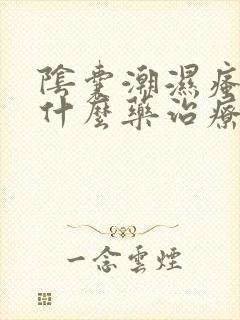 陰囊潮濕瘙
什麼藥治療
一念雲煙